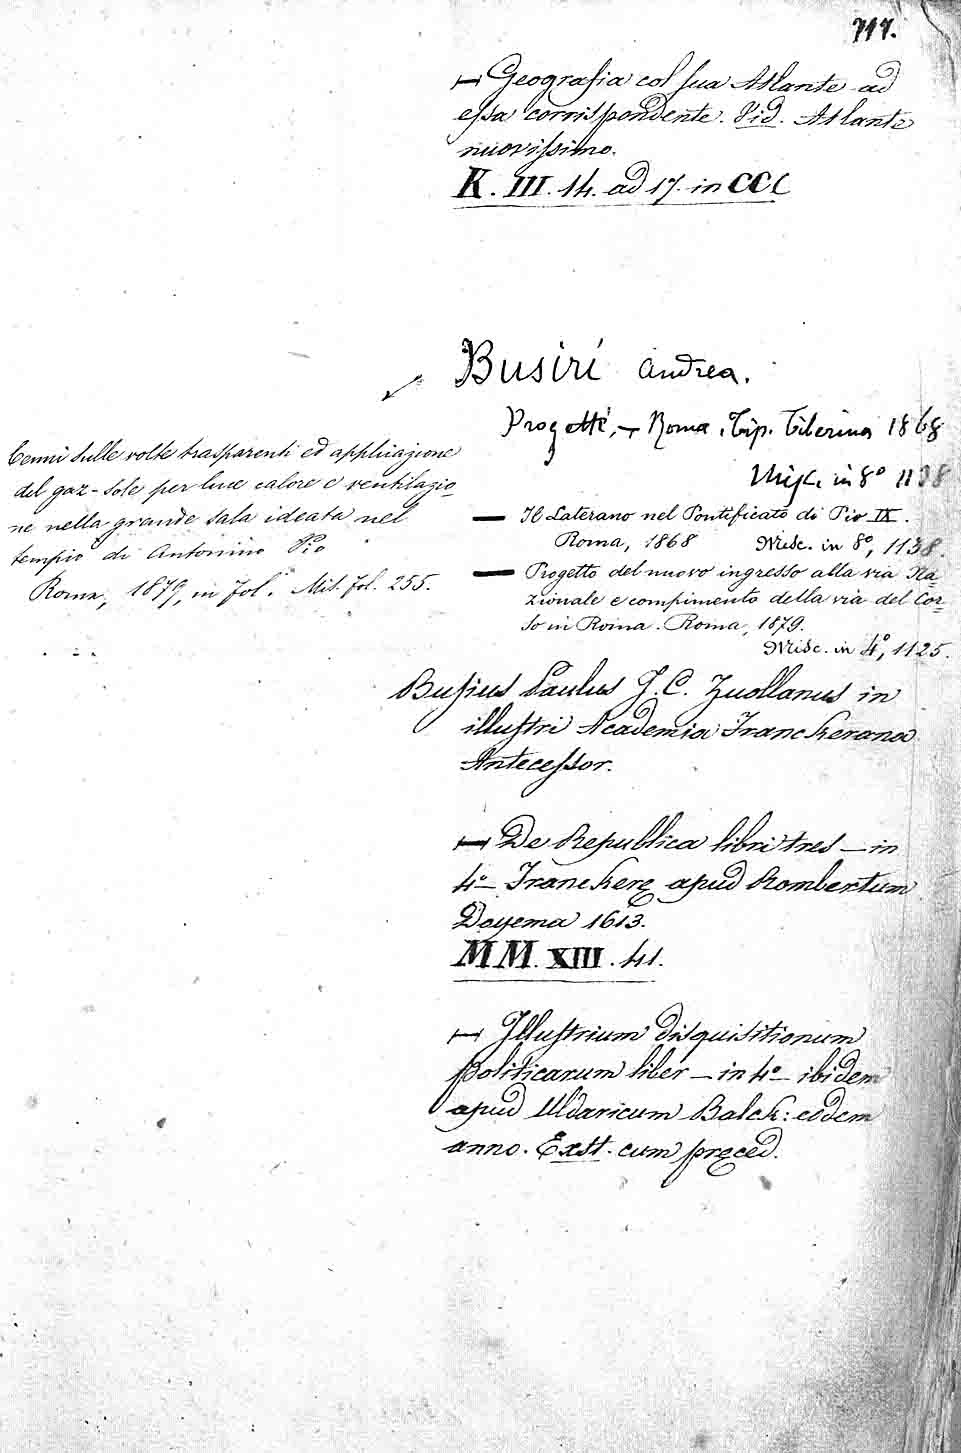 717.
— Geografia col suo Atlante ad
essa corrispondente. Vid. Atlante
nuovissimo.
K. III. 14. ad 17. in CCC
Busiri Andrea.
Progetti, — Roma, Tip. Tiberina 1868
Misc. in 8º 1138
— Il Laterano nel Pontificato di Pio IX.
Roma, 1868 Misc. in 8º, 1138.
— Progetto del nuovo ingresso alla via Na-
zionale e compimento della via del Cor-
so in Roma. Roma, 1879.
Misc. in 4º, 1125.
Cenni sulle volte trasparenti ed applicazione
del gaz-sole per luce calore e ventilazio-
ne nella grande sala ideata nel
tempio di Antonino Pio
Roma, 1879, in fol. Mis. fol. 255.
Busius Paulus J. C. Zuollanus in
illustri Academia Franckerana
Antecessor.
— De Republica libri tres — in
4º— Franckeræ apud Rombertum
Doyema 1613.
MM. XIII. 41.
— Illustrium disquisitionum
politicarum liber — in 4º— ibidem
apud Uldaricum Balck: eodem
anno. Exst. cum præced.